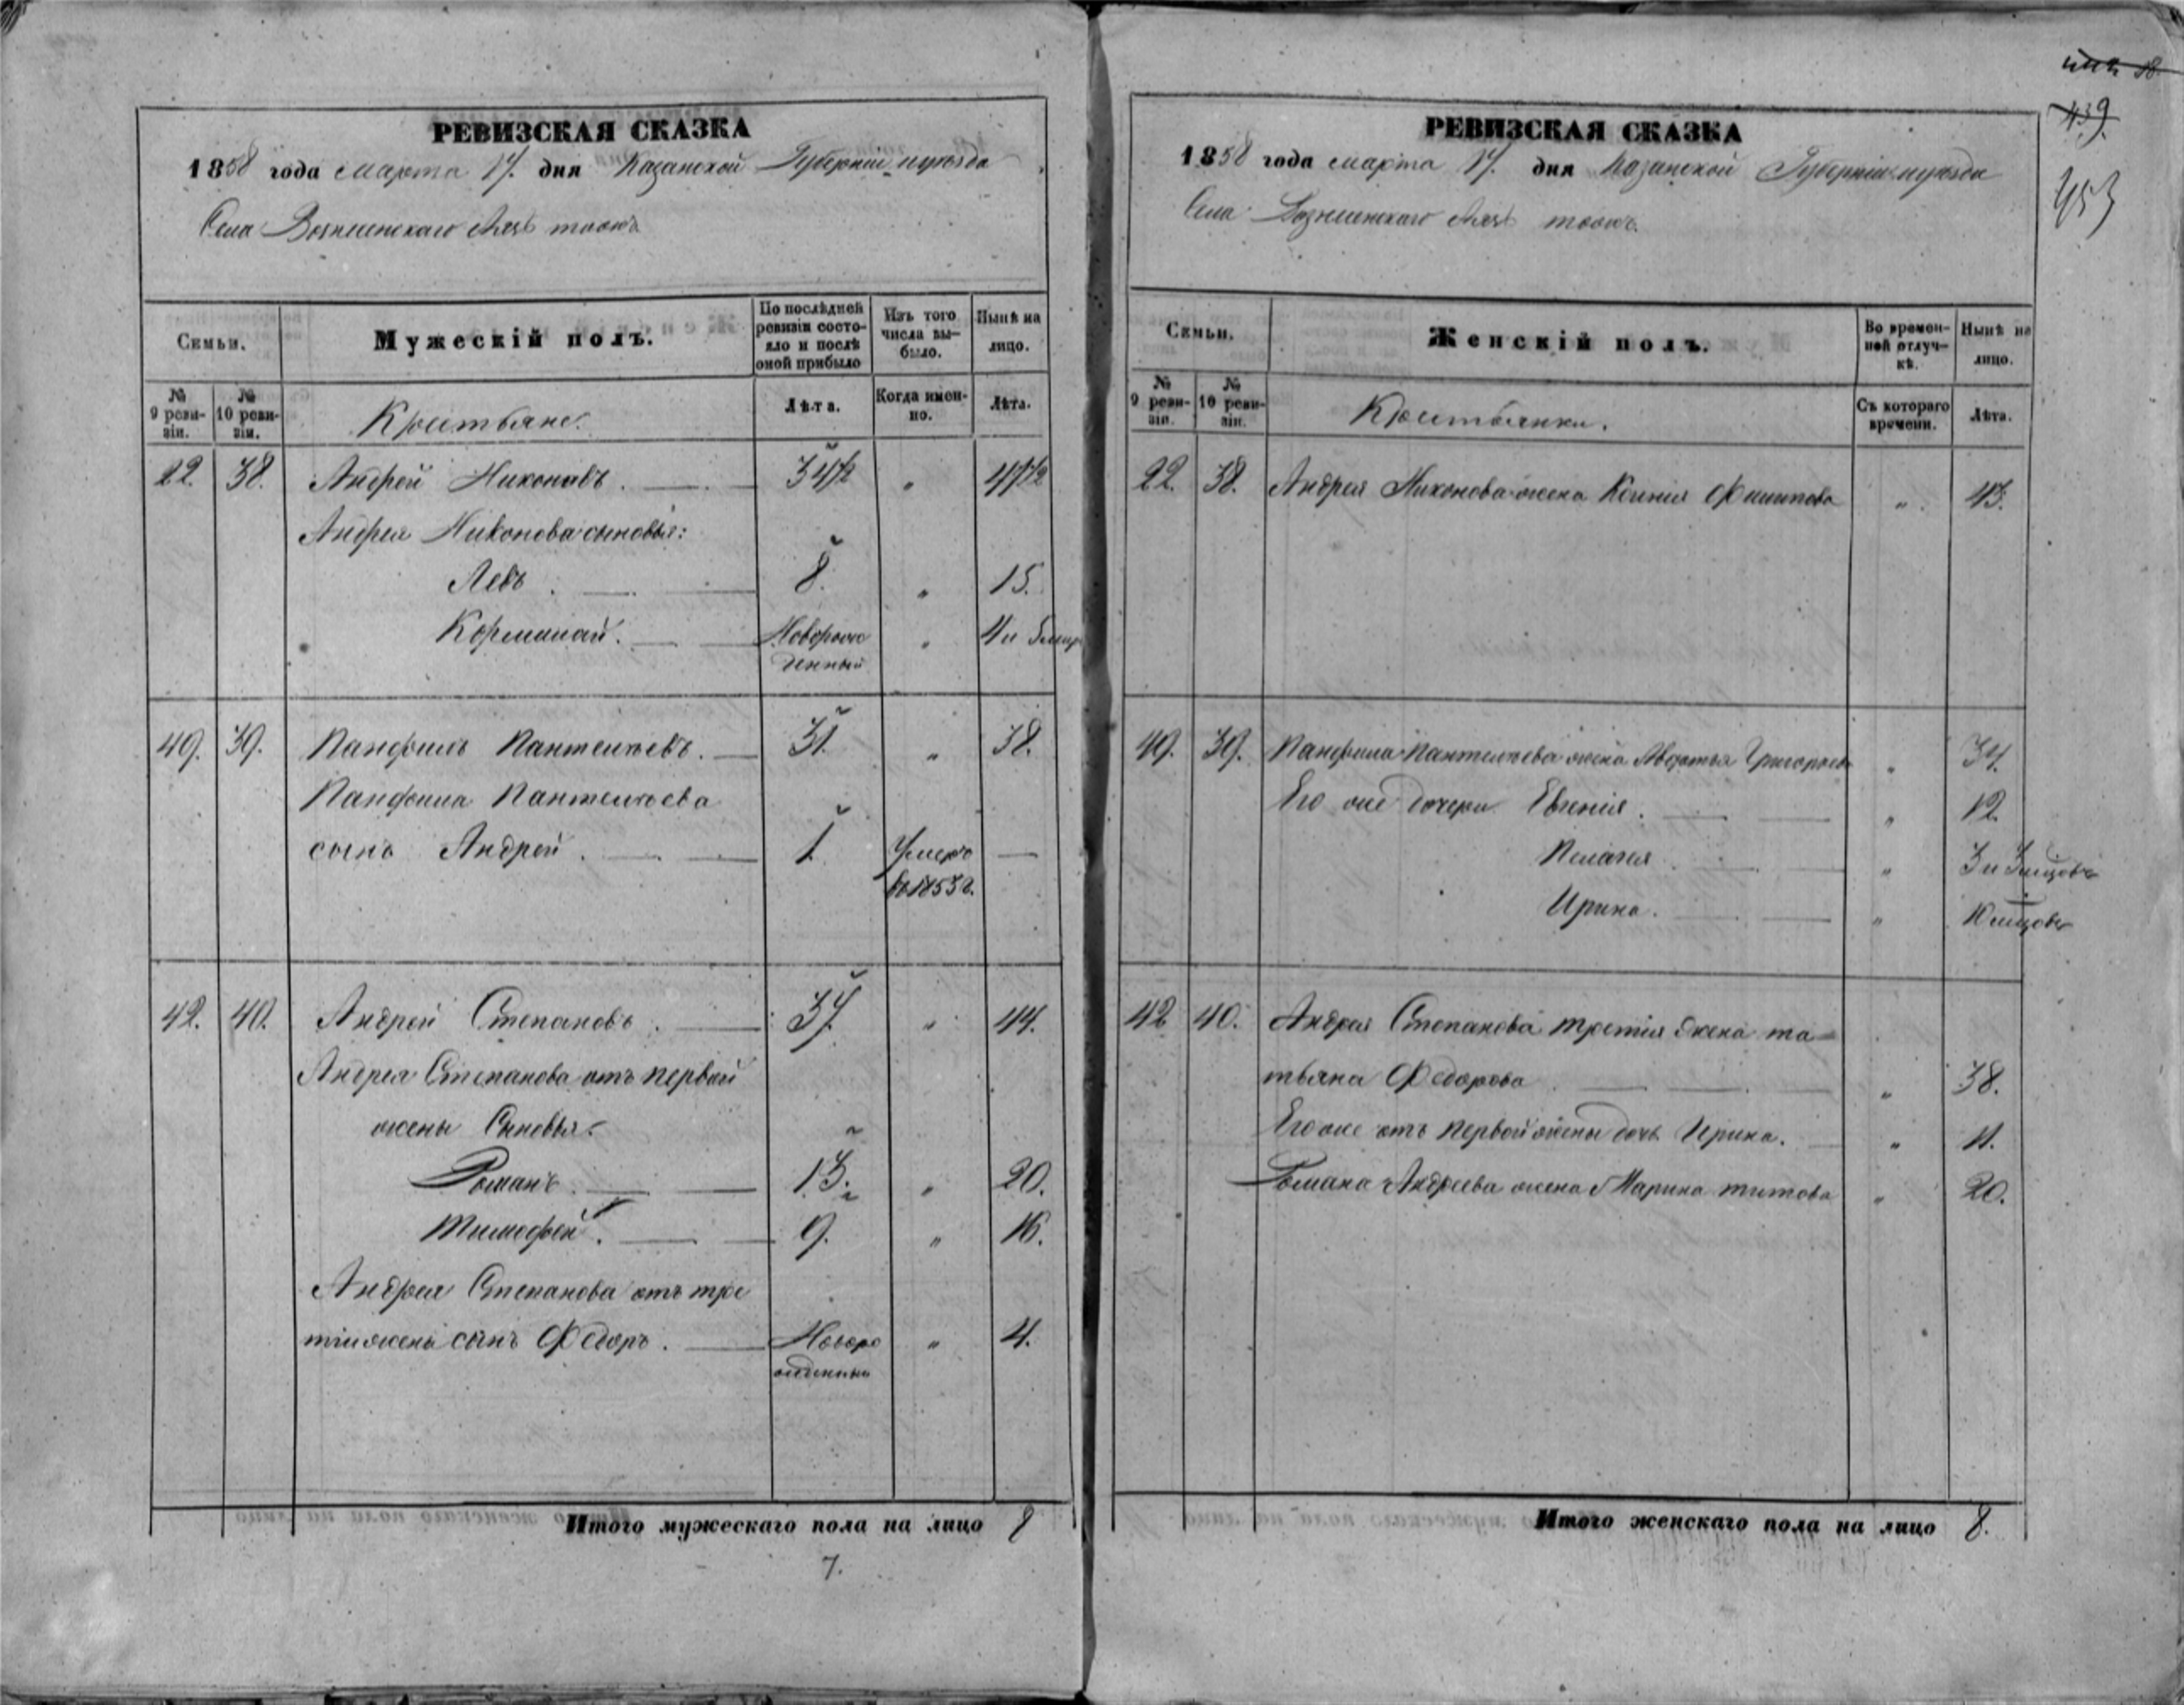 РЕВИЗСКАЯ СКАЗКА
1858 года марта 17. дня Казанской Губерніи и уѣзда
Села Вознесенскаго тожъ
Семьи.
Мужескій полъ.
По послѣдней ревизіи состояло и послѣ оной прибыло
Изъ того числа выбыло.
Нынѣ на лицо.
№ 9 ревизіи.
№ 10 ревизіи.
Крестьяне.
Лѣта.
Когда именно.
Лѣта.
22. 38. Андрей Никоновъ. 34 1/2 " 41 1/2
Андрея Никонова сыновья:
Левъ. 8. " 15.
Новорож "
денный
49. 39. Панфилъ Пантелѣевъ. 31. " 38.
Панфила Пантелѣева
сынъ Андрей. 1. Умеръ —
въ 1853 г.
42. 40. Андрей Степановъ. 37. " 44.
Андрея Степанова отъ первой
жены Сыновья:
Романъ. 13. " 20.
Тимофей. 9. " 16.
Андрея Степанова отъ тре
тій жены сынъ Федоръ. Новоро " 4.
жденный
Итого мужескаго пола на лицо 8
7.
439.
453
РЕВИЗСКАЯ СКАЗКА
1858 года марта 17. дня Казанской Губерніи и уѣзда
Села Вознесенскаго тожъ.
Семьи.
Женскій полъ.
Во временной отлучкѣ.
Нынѣ на лицо.
№ 9 ревизіи.
№ 10 ревизіи.
Крестьянки.
Съ котораго времени.
Лѣта.
22. 38. Андрея Никонова жена Ксенія Филипова " 43.
49. 39. Панфила Пантелѣева жена Авдотья Григорьева " 34.
Его же дочери Евгенія. " 12.
Пелагея " 3 и 3 мѣсцовъ
Ирина. " 10 мѣсцовъ
42 40. Андрея Степанова третія жена та
тьяна Федорова " 38.
Его же отъ первой жены дочь Ирина. " 11.
Романа Андреева жена Марина титова " 20.
Итого женскаго пола на лицо 8.